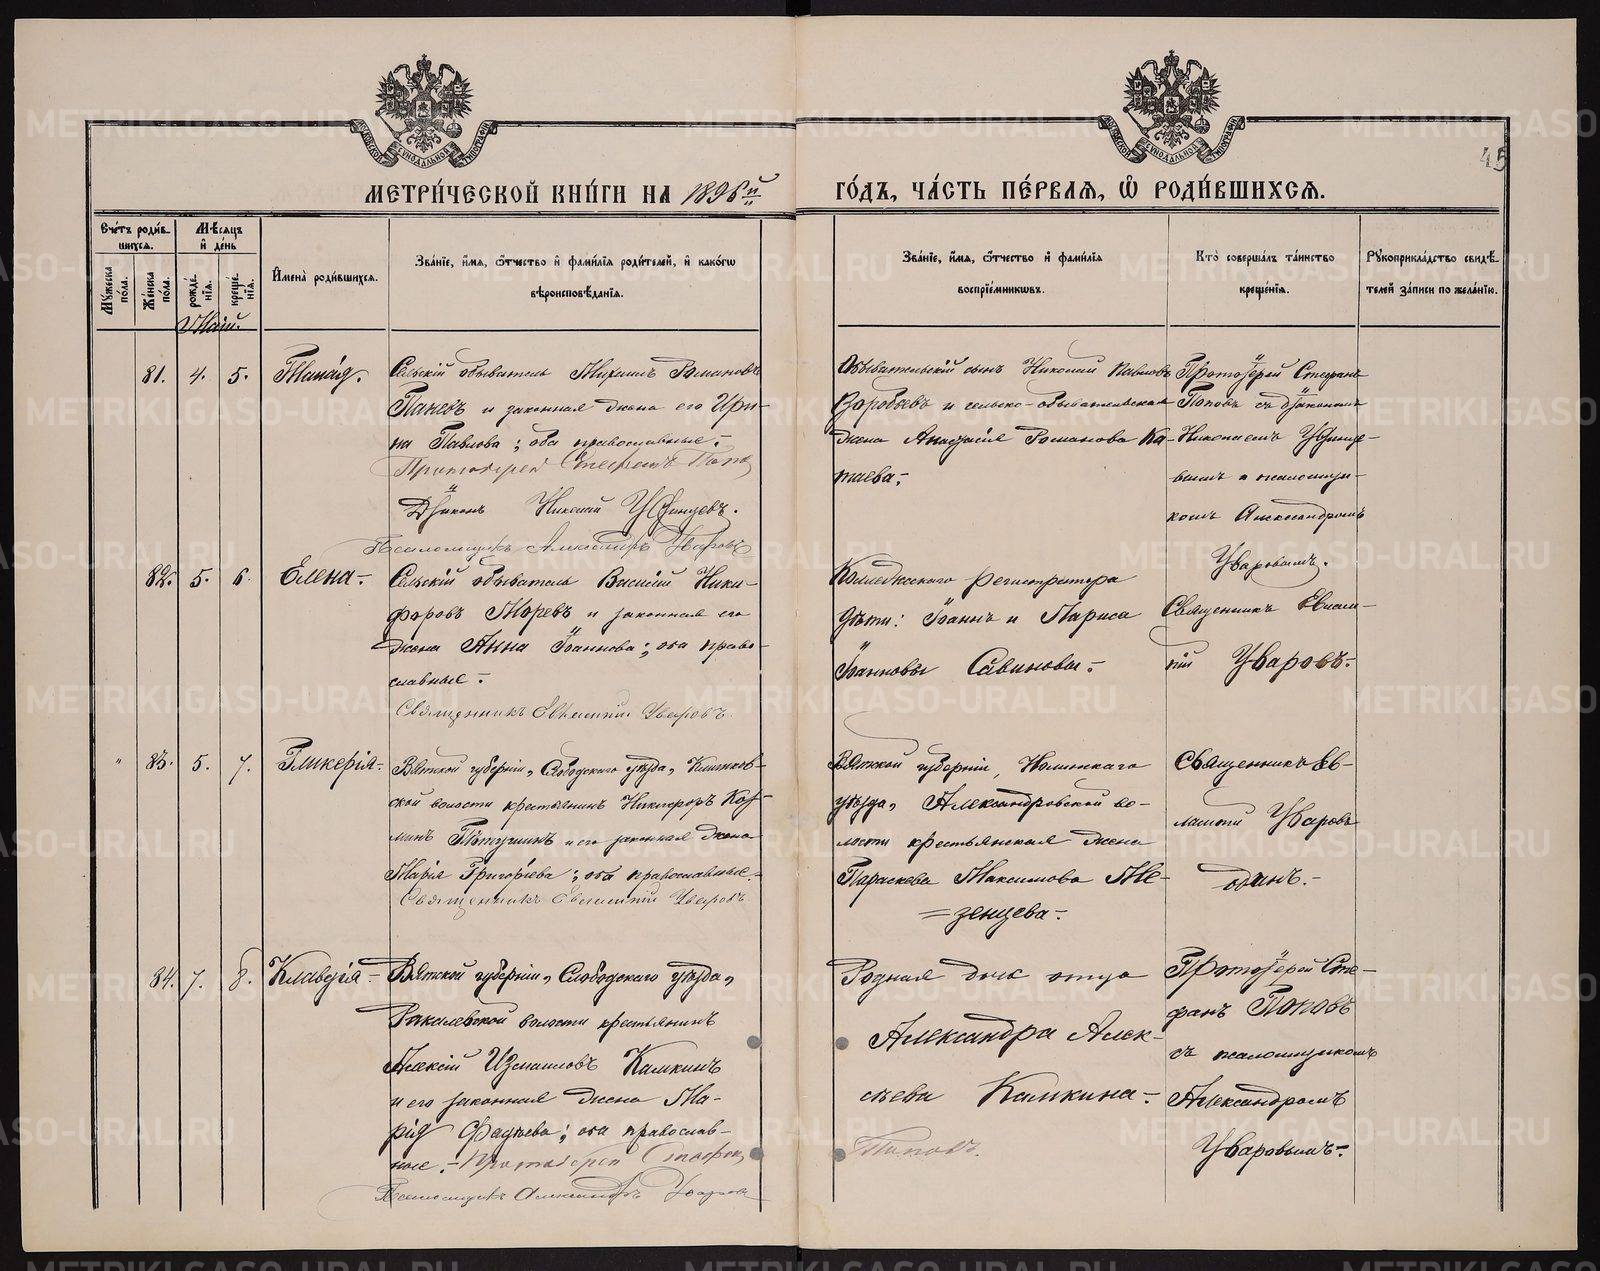 МЕТРИ́ЧЕСКОЙ КНИ́ГИ НА 1896й
ГО́ДЪ, ЧА́СТЬ ПЕ́РВАЯ, Ѡ҆ РОДИ́ВШИХСЯ.
45
Сче́тъ роди́вшихся.
Мѣ́сяцъ и҆ де́нь
Му́жеска по́ла.
Же́нска по́ла.
рожде́нїя.
креще́нїя.
И҆мена̀ роди́вшихся.
Зва́нїе, и҆́мя, ѻ҆́тчество и҆ фами́лїя роди́телей, и҆ како́гѡ
вѣроисповѣ́данїя.
Зва́нїе, и҆́мя, ѻ҆́тчество и҆ фами́лїя
воспрїе́мникѡвъ.
Кто̀ соверша́лъ та́инство
креще́нїя.
Рꙋкоприкла́дство свидѣ́-
телей за́писи по жела́нїю.
Маій.
81. 4. 5.
Сельскій обыватель Михаилъ Романовъ
Паневъ и законная жена его Ири-
на Павлова; оба православные.
Протоіерей Стефанъ Попов
Діаконъ Николай Уфинцевъ.
Псаломщикъ Александръ Уваровъ
Обывательскій сынъ Николай Павловъ
Воробьевъ и сельско-обывательская
жена Анастасія Романова Ка-
таева.
Протоіерей Стефанъ
Поповъ съ діакономъ
Николаемъ Уфинце-
вымъ и псаломщи-
комъ Александромъ
Уваровымъ.
82. 5. 6. Елена.
Сельскій обыватель Василій Ники-
форовъ Моревъ и законная его
жена Анна Іоаннова; оба право-
славные.
Священникъ Евлампій Уваровъ.
Коллежскаго регистратора
дѣти: Іоаннъ и Лариса
Іоанновы Савиновы.
Священникъ Евлам-
пій Уваровъ.
" 83. 5. 7. Гликерія.
Вятской губерніи, Слободскаго уѣзда, Климков-
ской волости крестьянинъ Никифоръ Коз-
минъ Потушинъ и его законная жена
Марія Григоріева; оба православные.
Священникъ Евлампій Уваровъ
Вятской губерніи, Нолинскаго
уѣзда, Александровской во-
лости крестьянская жена
Параскева Максимова Ме-
=зенцева.
Священникъ Ев-
лампій Уваровъ
одинъ.
84. 7. 8. Клавдія.
Вятской губерніи, Слободскаго уѣзда,
Ракалевской волости крестьянинъ
Алексій Измаиловъ Камкинъ
и его законная жена Ма-
рія Фадѣева; оба православ-
ные. Протоіерей Стефан
Псаломщикъ Александръ Уваровъ
Родная дочь отца
Александра Алек-
сѣева Камкина.
Поповъ.
Протоіерей Сте-
фанъ Поповъ
съ псаломщикомъ
Александромъ
Уваровымъ.
METRIKI.GASO-URAL.RU